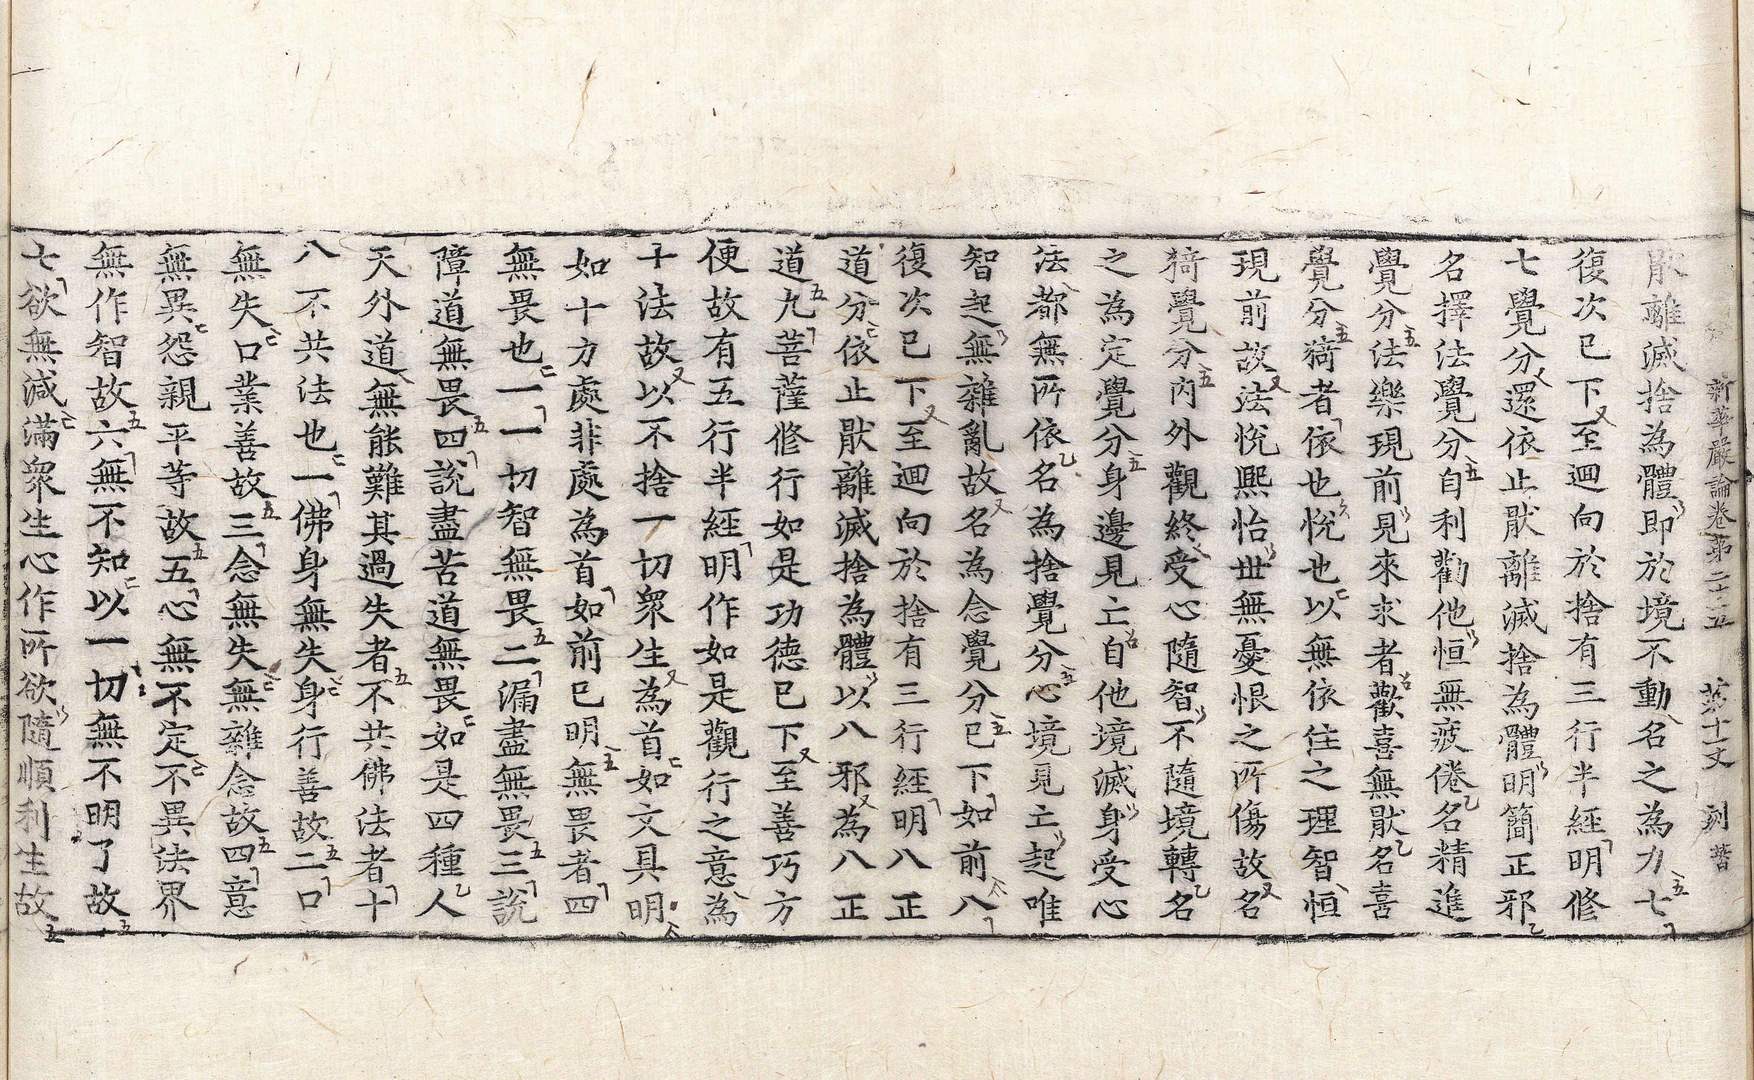 新華嚴論卷第二十五 第十丈 刻
猒離滅捨為體即於境不動名之為力七
復次已下至迴向於捨有三行半經明修
七覺分還依止猒離滅捨為體明簡正邪
名擇法覺分自利勸他恒無疲倦名精進
覺分法樂現前見來求者歡喜無猒名喜
覺分猗者依也悅也以無依住之理智恒
現前故法悅熙怡世無憂恨之所傷故名
猗覺分內外觀終受心隨智不隨境轉名
之為定覺分身邊見亡自他境滅身受心
法都無所依名為捨覺分心境見亡起唯
智起無雜亂故名為念覺分已下如前八
復次已下至迴向於捨有三行經明八正
道分依止猒離滅捨為體以八邪為八正
道九菩薩修行如是功德已下至善巧方
便故有五行半經明作如是觀行之意為
十法故以不捨一切眾生為首如文具明
如十方處非處為首如前已明無畏者四
無畏也一一切智無畏二漏盡無畏三說
障道無畏四說盡苦道無畏如是四種人
天外道無能難其過失者不共佛法者十
八不共法也一佛身無失身行善故二口
無失口業善故三念無失無雜念故四意
無異怨親平等故五心無不定不異法界
無作智故六無不知以一切無不明了故
七欲無減滿眾生心作所欲隨順利生故